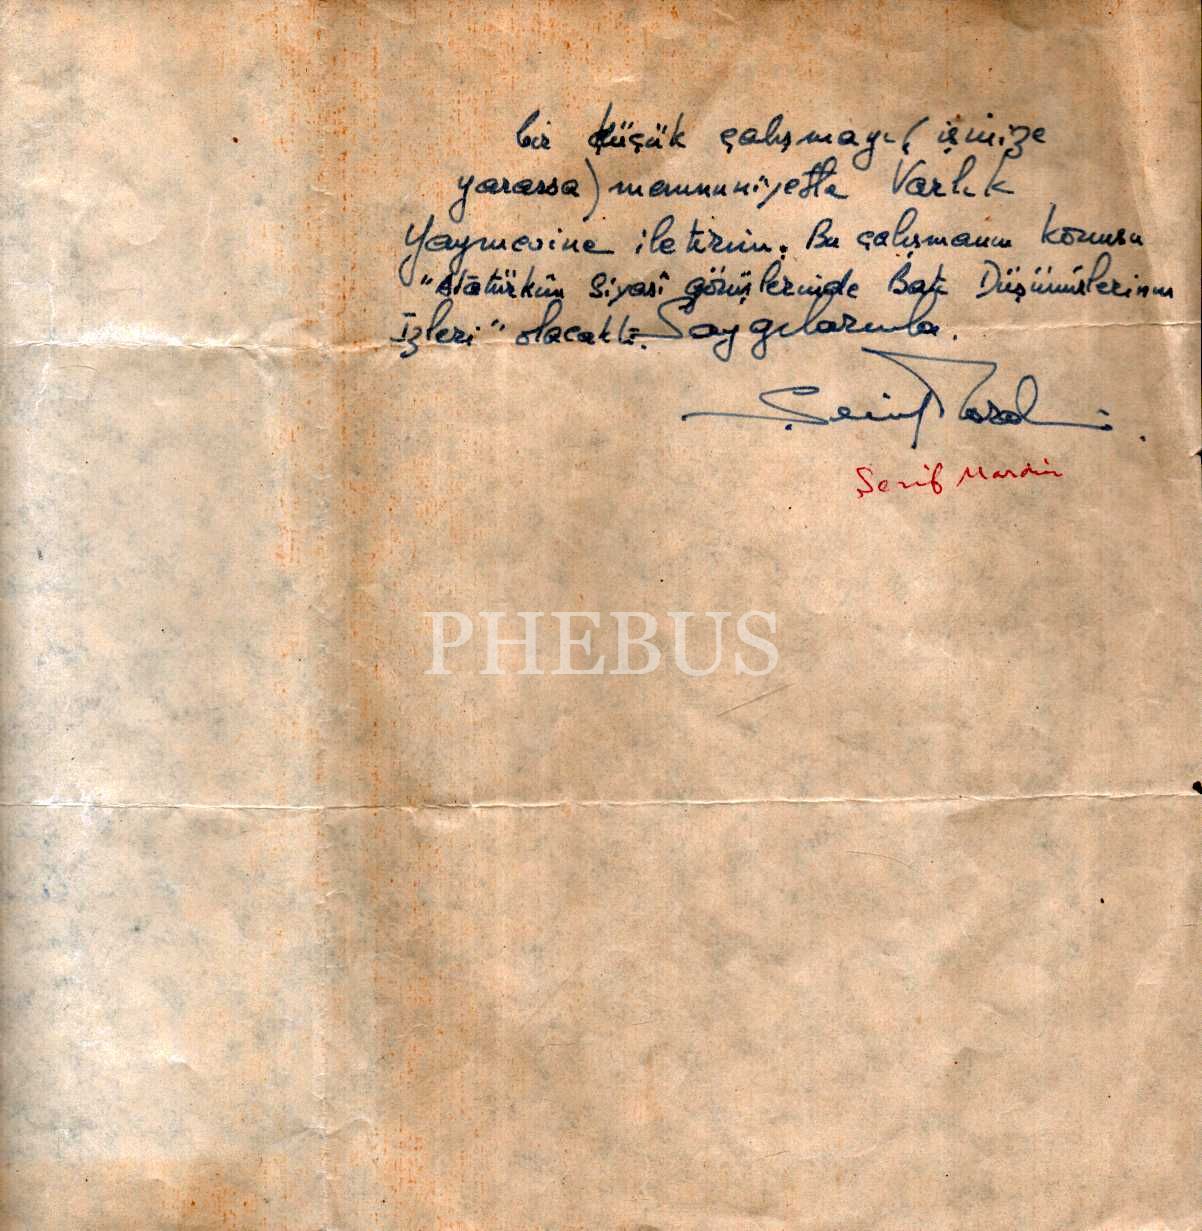 bir küçük çalışmayı (işinize
yararsa) memnuniyetle Varlık
Yayınevine iletirim. Bu çalışmanın konusu
"Atatürkün Siyasî görüşlerinde Batı Düşünürlerinin
İzleri" olacaktı. Saygılarımla.
Şerif Mardin
Şerif Mardin
PHEBUS